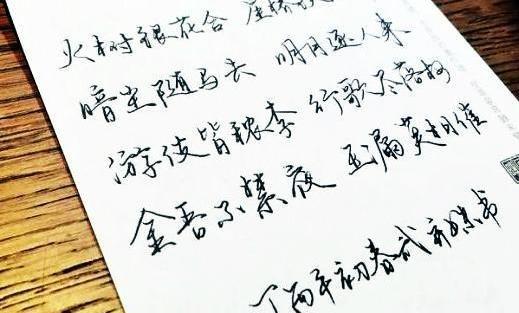 火树银花合 星桥
暗尘随马去 明月逐人来
游伎皆秾李 行歌尽落梅
金吾不禁夜 玉漏莫相催
丁酉年初春武 书